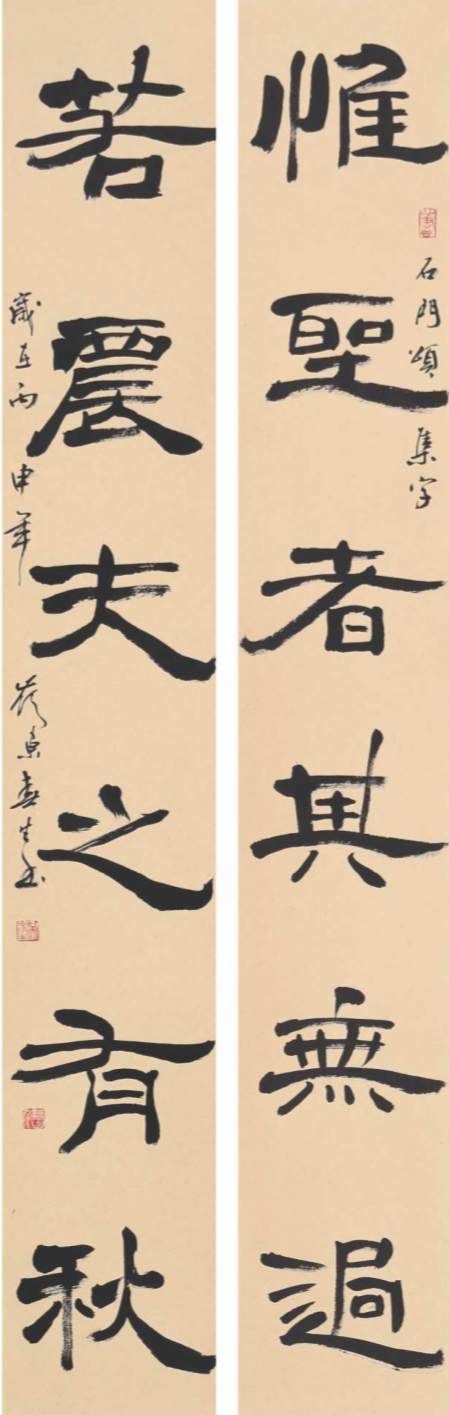 惟聖者其無過
石門頌集字
若農夫之有秋
歲在丙申年
春生書